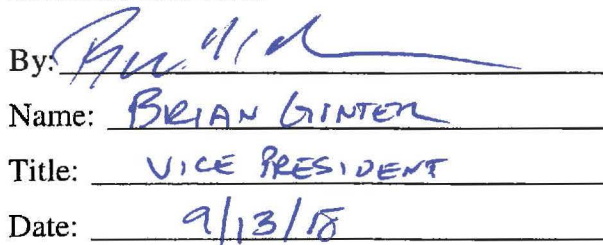 By:
Name: BRIAN GINTER
Title: VICE PRESIDENT
Date: 9/13/18